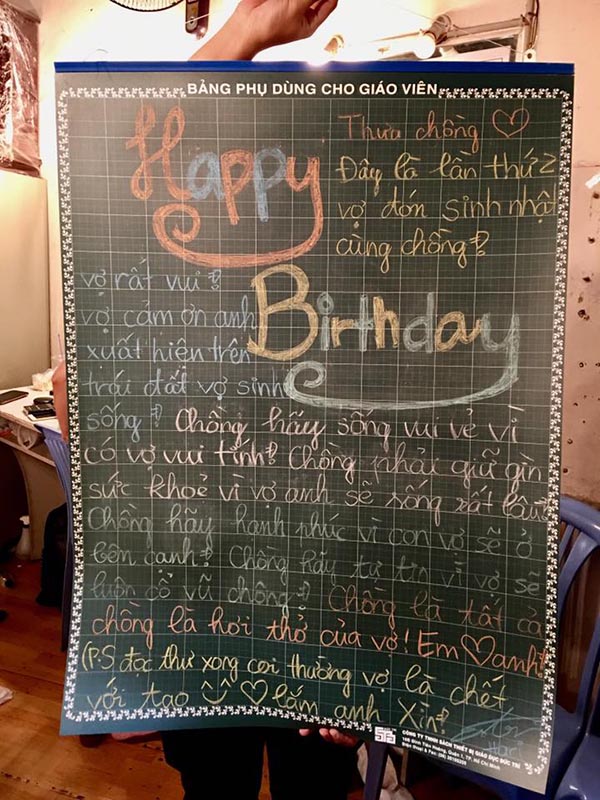 BẢNG PHỤ DÙNG CHO GIÁO VIÊN
Happy
Thưa chồng ♡
Đây là lần thứ 2
vợ đón sinh nhật
cùng chồng!
Birthday
vợ rất vui!
vợ cảm ơn anh
xuất hiện trên
trái đất vợ sinh
sống! Chồng hãy sống vui vẻ vì
có vợ vui tính! Chồng phải giữ gìn
sức khoẻ vì vợ anh sẽ sống rất lâu!
Chồng hãy hạnh phúc vì con vợ sẽ ở
bên cạnh! Chồng hãy tự tin vì vợ sẽ
luôn cổ vũ chồng! Chồng là tất cả
chồng là hơi thở của vợ! Em ♡ anh!
(P.S đọc thư xong coi thường vợ là chết
với tao ♡ lắm anh Xìn!
Hari
CÔNG TY TNHH SÁCH THIẾT BỊ GIÁO DỤC ĐỨC TRÍ